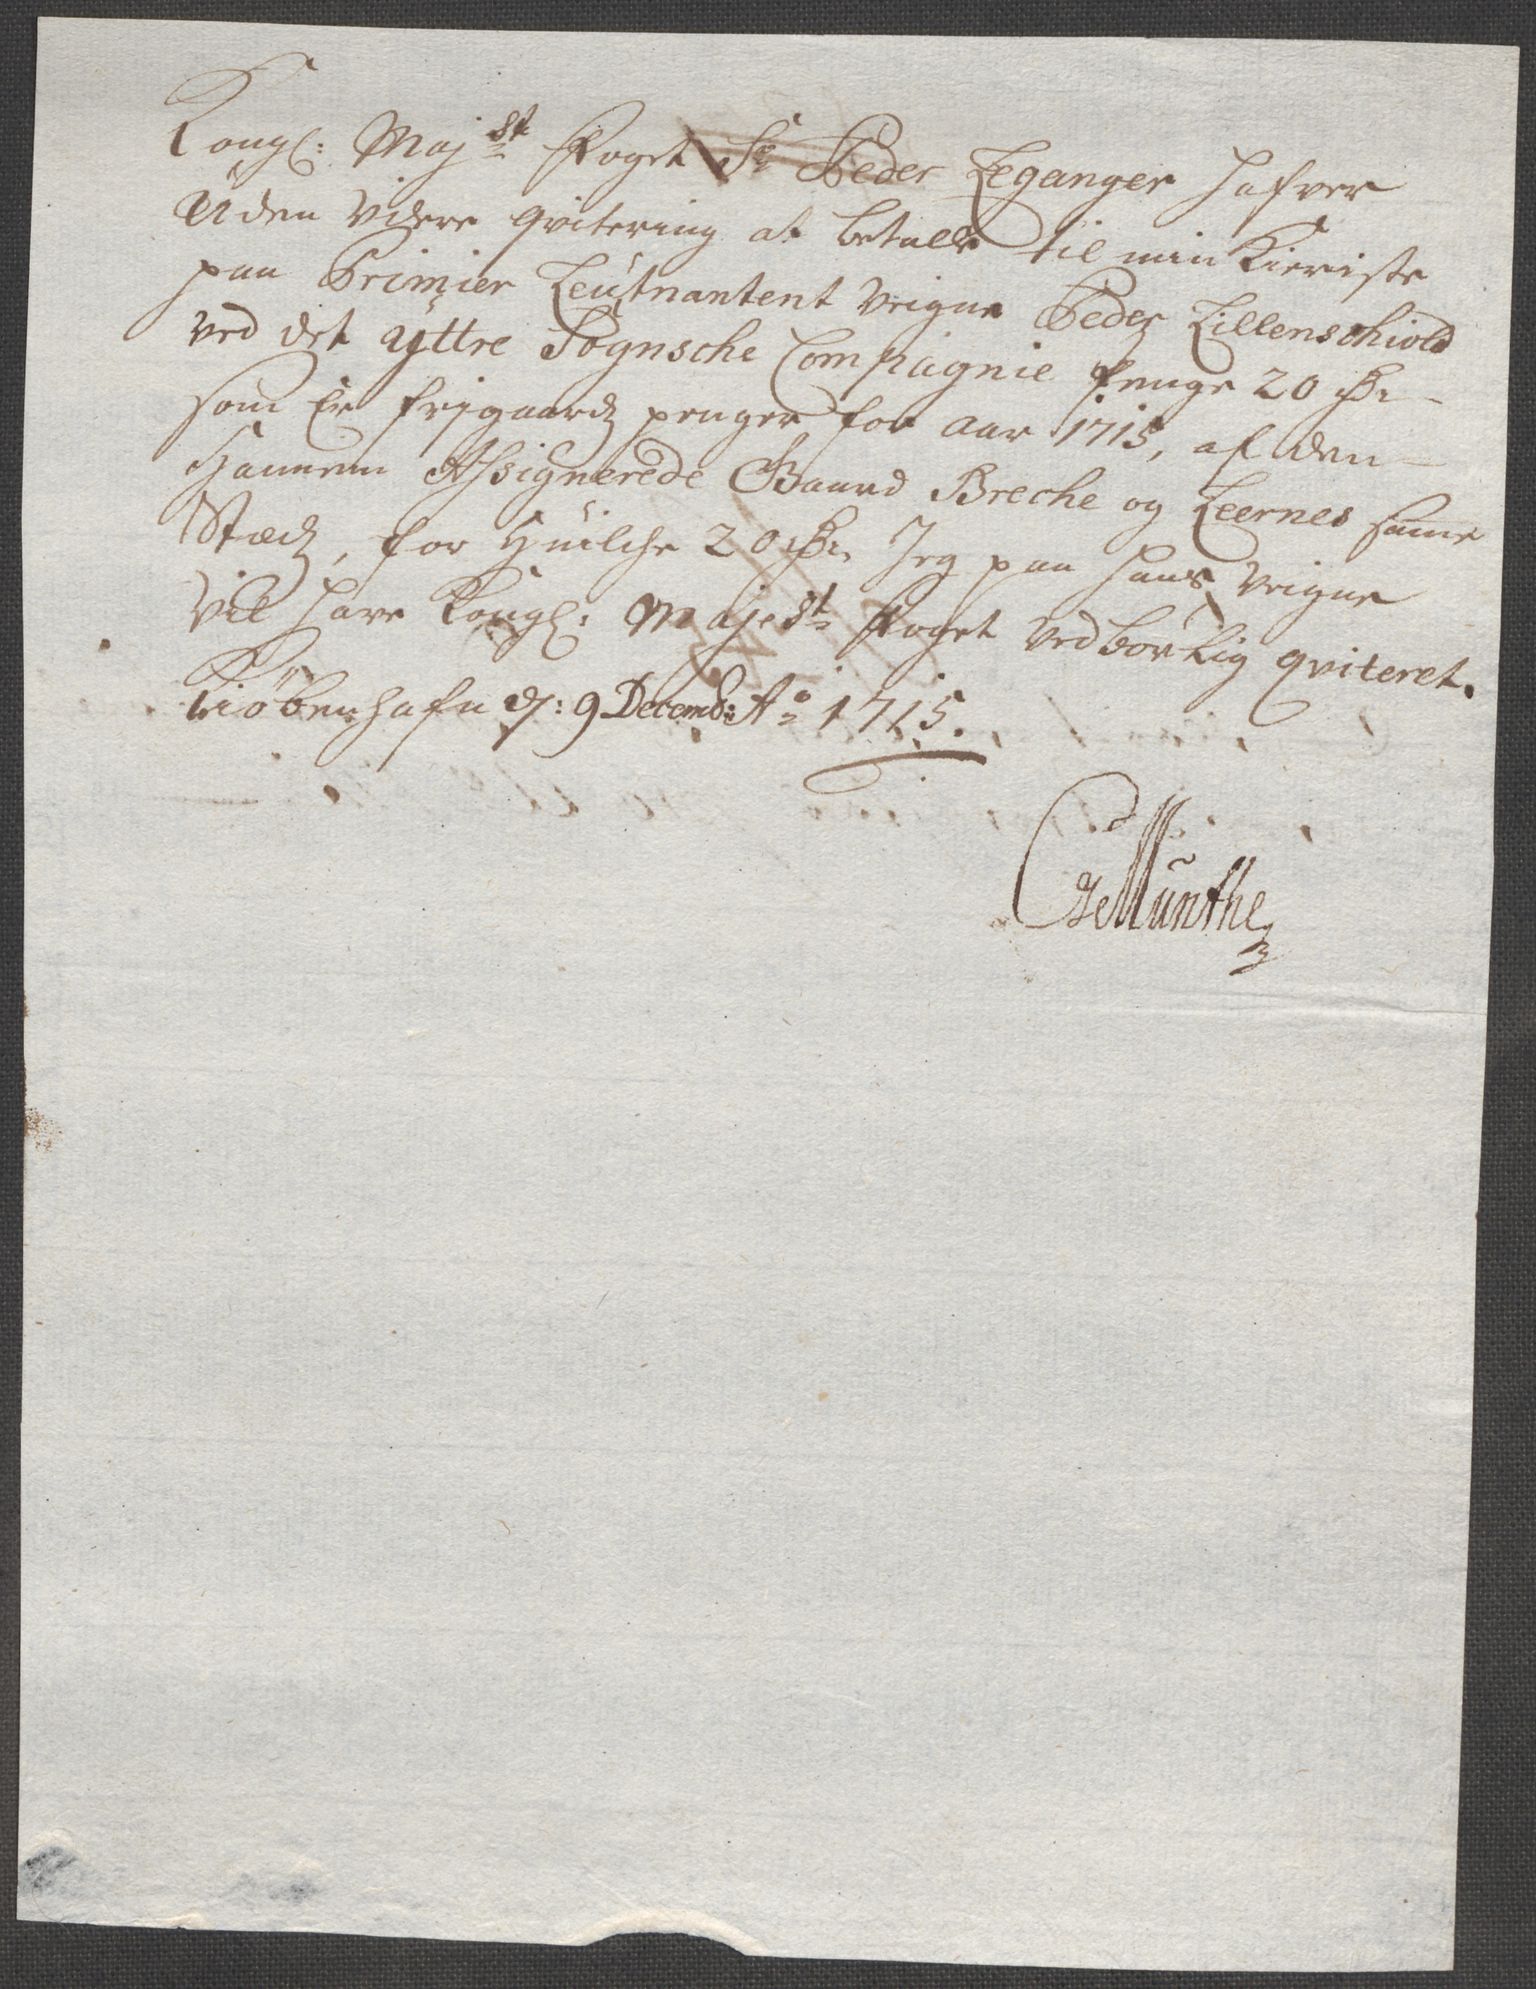 Kongl: Maj:st Foget Sr Peder Leganger hafver
Uden videre qvitering at betalle til min Kieriste
paa Primier Leutnantent veigne Peder Lillenschiold
ved det Yttre Sognsche Compagnie penge 20 Rdr
som Er frigaards penger for Aar 1715, af den
Hannem Assignerede Gaard Breche og Leernes samestædz, for Huilche 20 Rdr Jeg paa hans veigne
vil have Kongl: Majest: Foget vedborlig qviteret.
Kiøbenhafn d: 9 Decemb: Ao 1715.
GMunthe